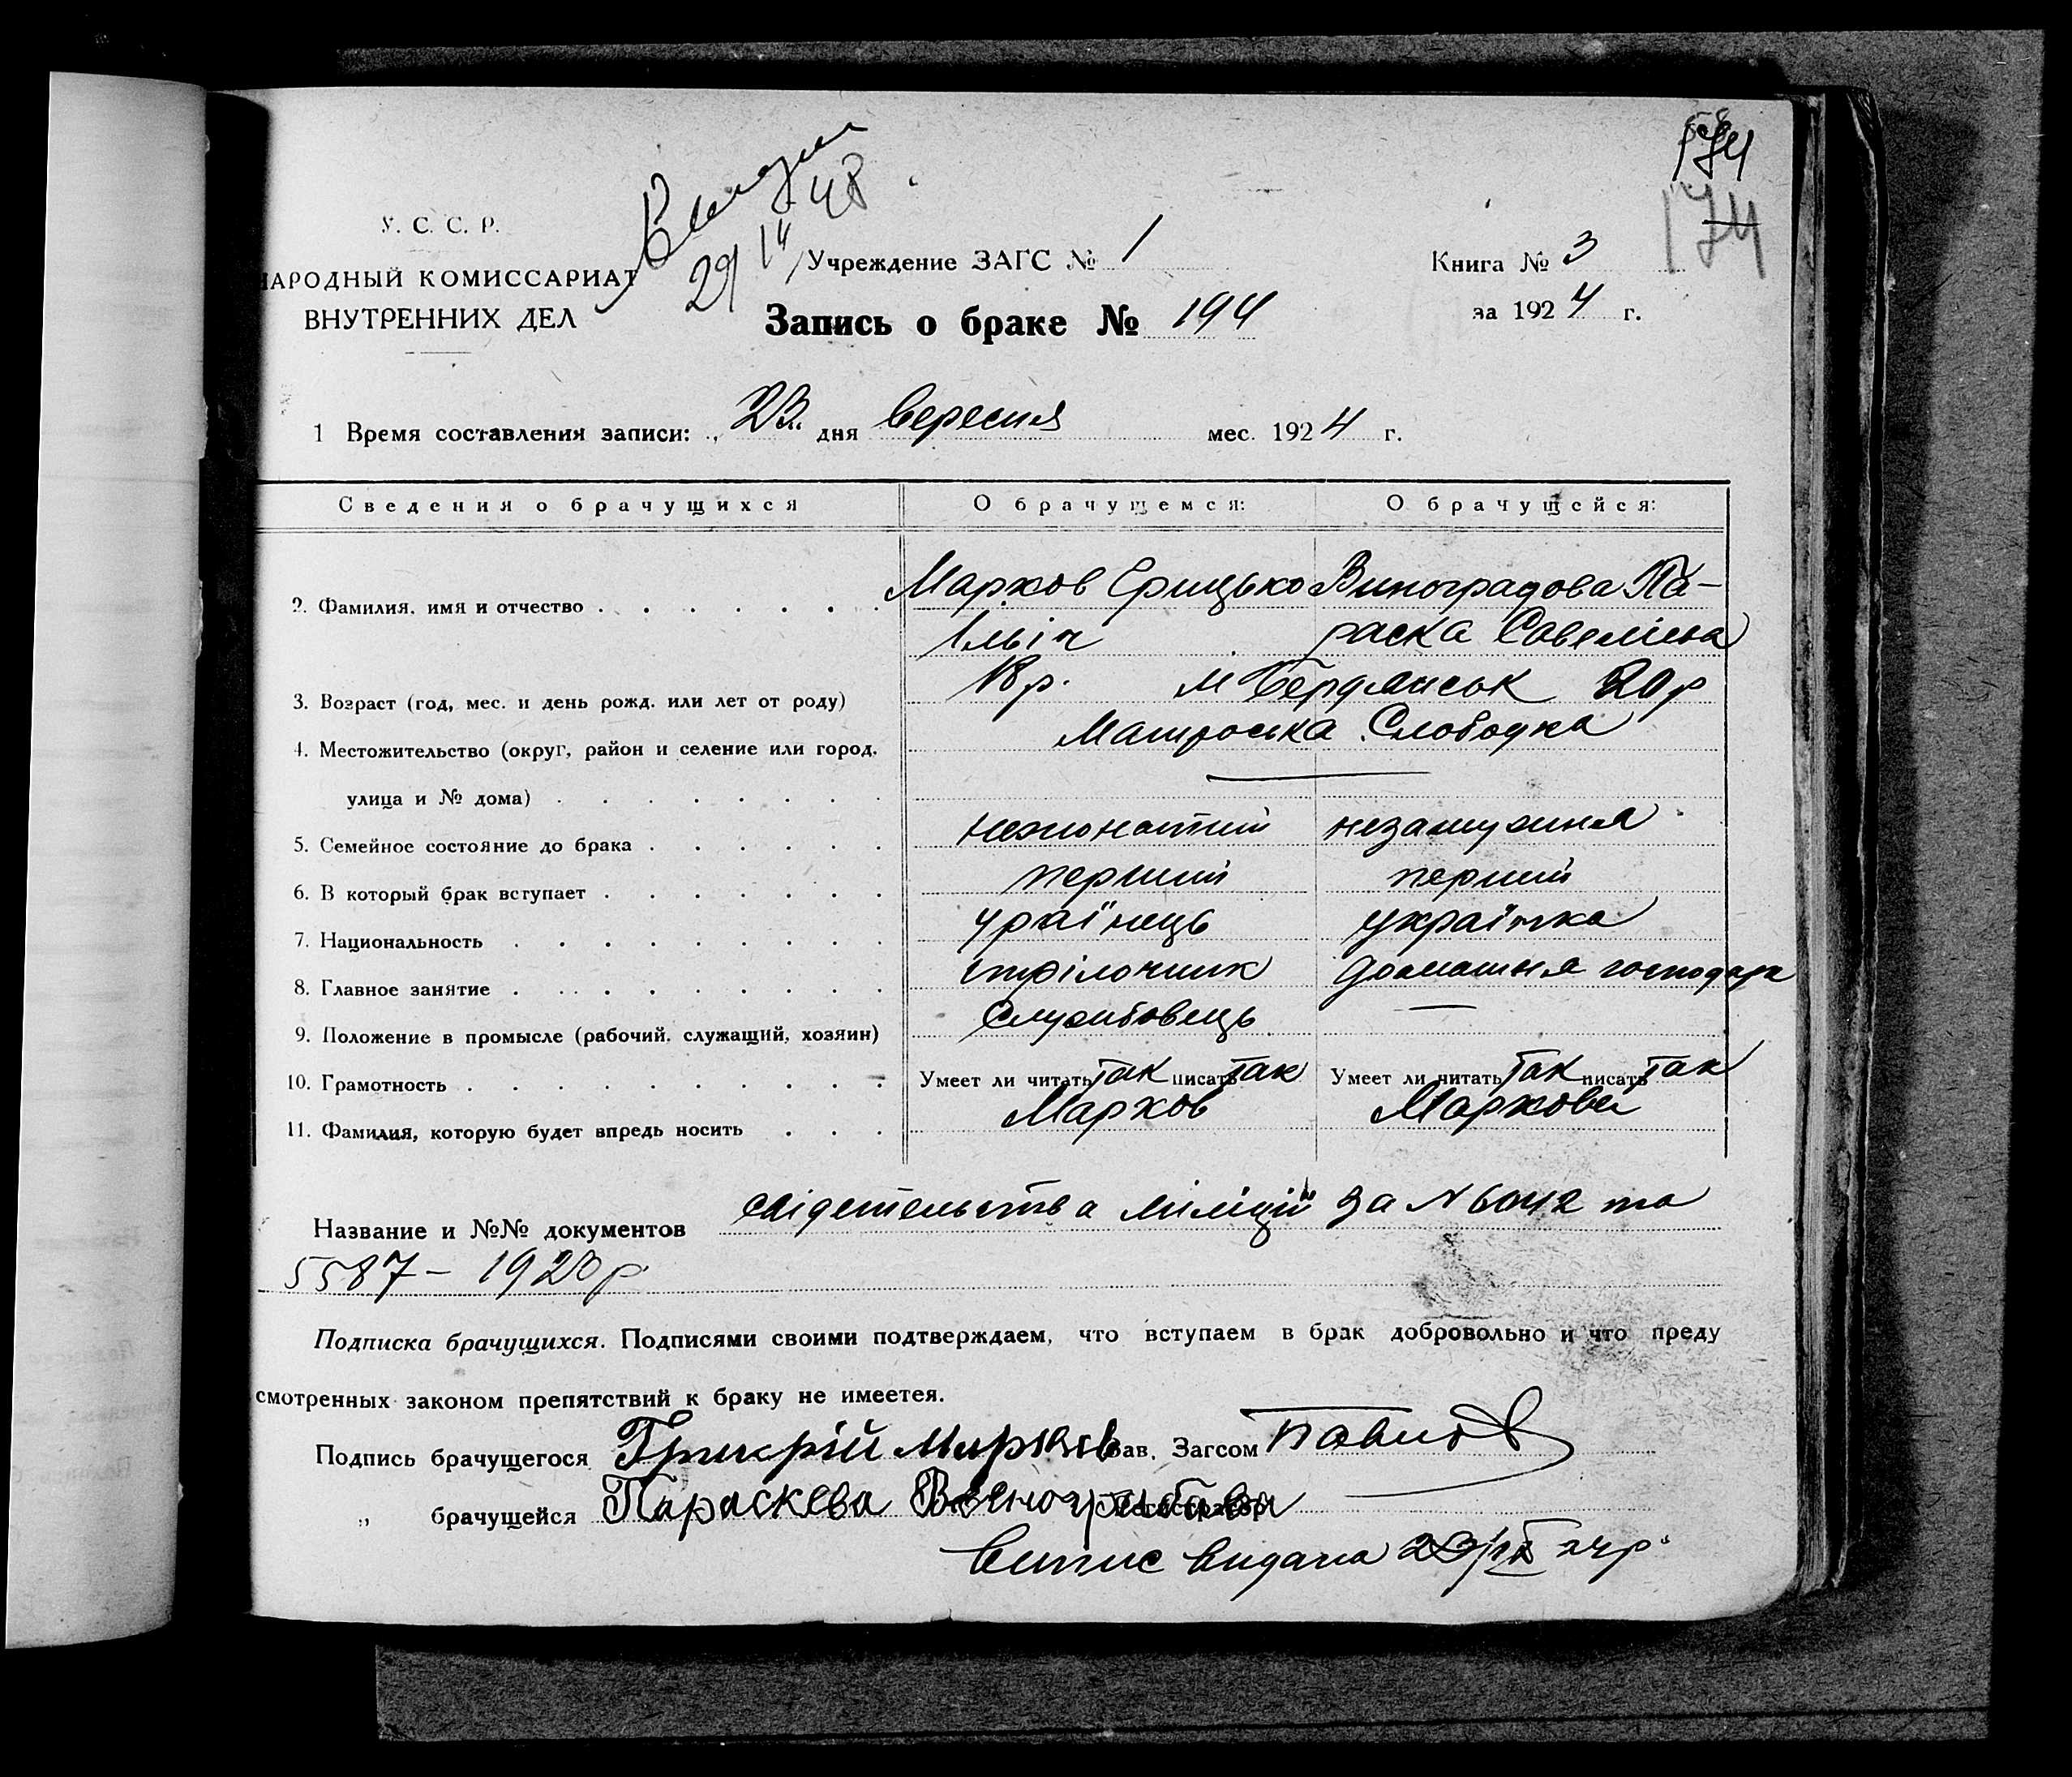 174
174
У. С. С. Р.
НАРОДНЫЙ КОМИССАРИАТ
ВНУТРЕННИХ ДЕЛ
29/IV 48
Учреждение ЗАГС № 1
Книга № 3
Запись о браке № 194
за 1924 г.
1 Время составления записи: „ 23 дня вересня мес. 1924 г.
Сведения о брачущихся О брачущемся: О брачущейся:
2. Фамилия, имя и отчество Марков Грицько Виноградова Па-
Ільіч раска Савеліевна
3. Возраст (год, мес. и день рожд. или лет от роду) 18 р. м Бердянськ 20 р
4. Местожительство (округ, район и селение или город, Матроська Слободка
улица и № дома)
5. Семейное состояние до брака нежонатий незамужня
6. В который брак вступает перший перший
7. Национальность Украінець Українка
8. Главное занятие стрілочник домашня господарк
9. Положение в промысле (рабочий, служащий, хозяин) Службовець —
10. Грамотность Умеет ли читать так писать так Умеет ли читать так писать так
11. Фамилия, которую будет впредь носить Марков Маркова
Название и №№ документов свідетельства міліціи за № 6042 та
5587 – 1923 р
Подписка брачущихся. Подписями своими подтверждаем, что вступаем в брак добровольно и что преду
смотренных законом препятствий к браку не имеетея.
Подпись брачущегося Григорій Марков Зав. Загсом
„ брачущейся Параскева Виноградова Регистратор
Випис видана 23/IX 24 р.